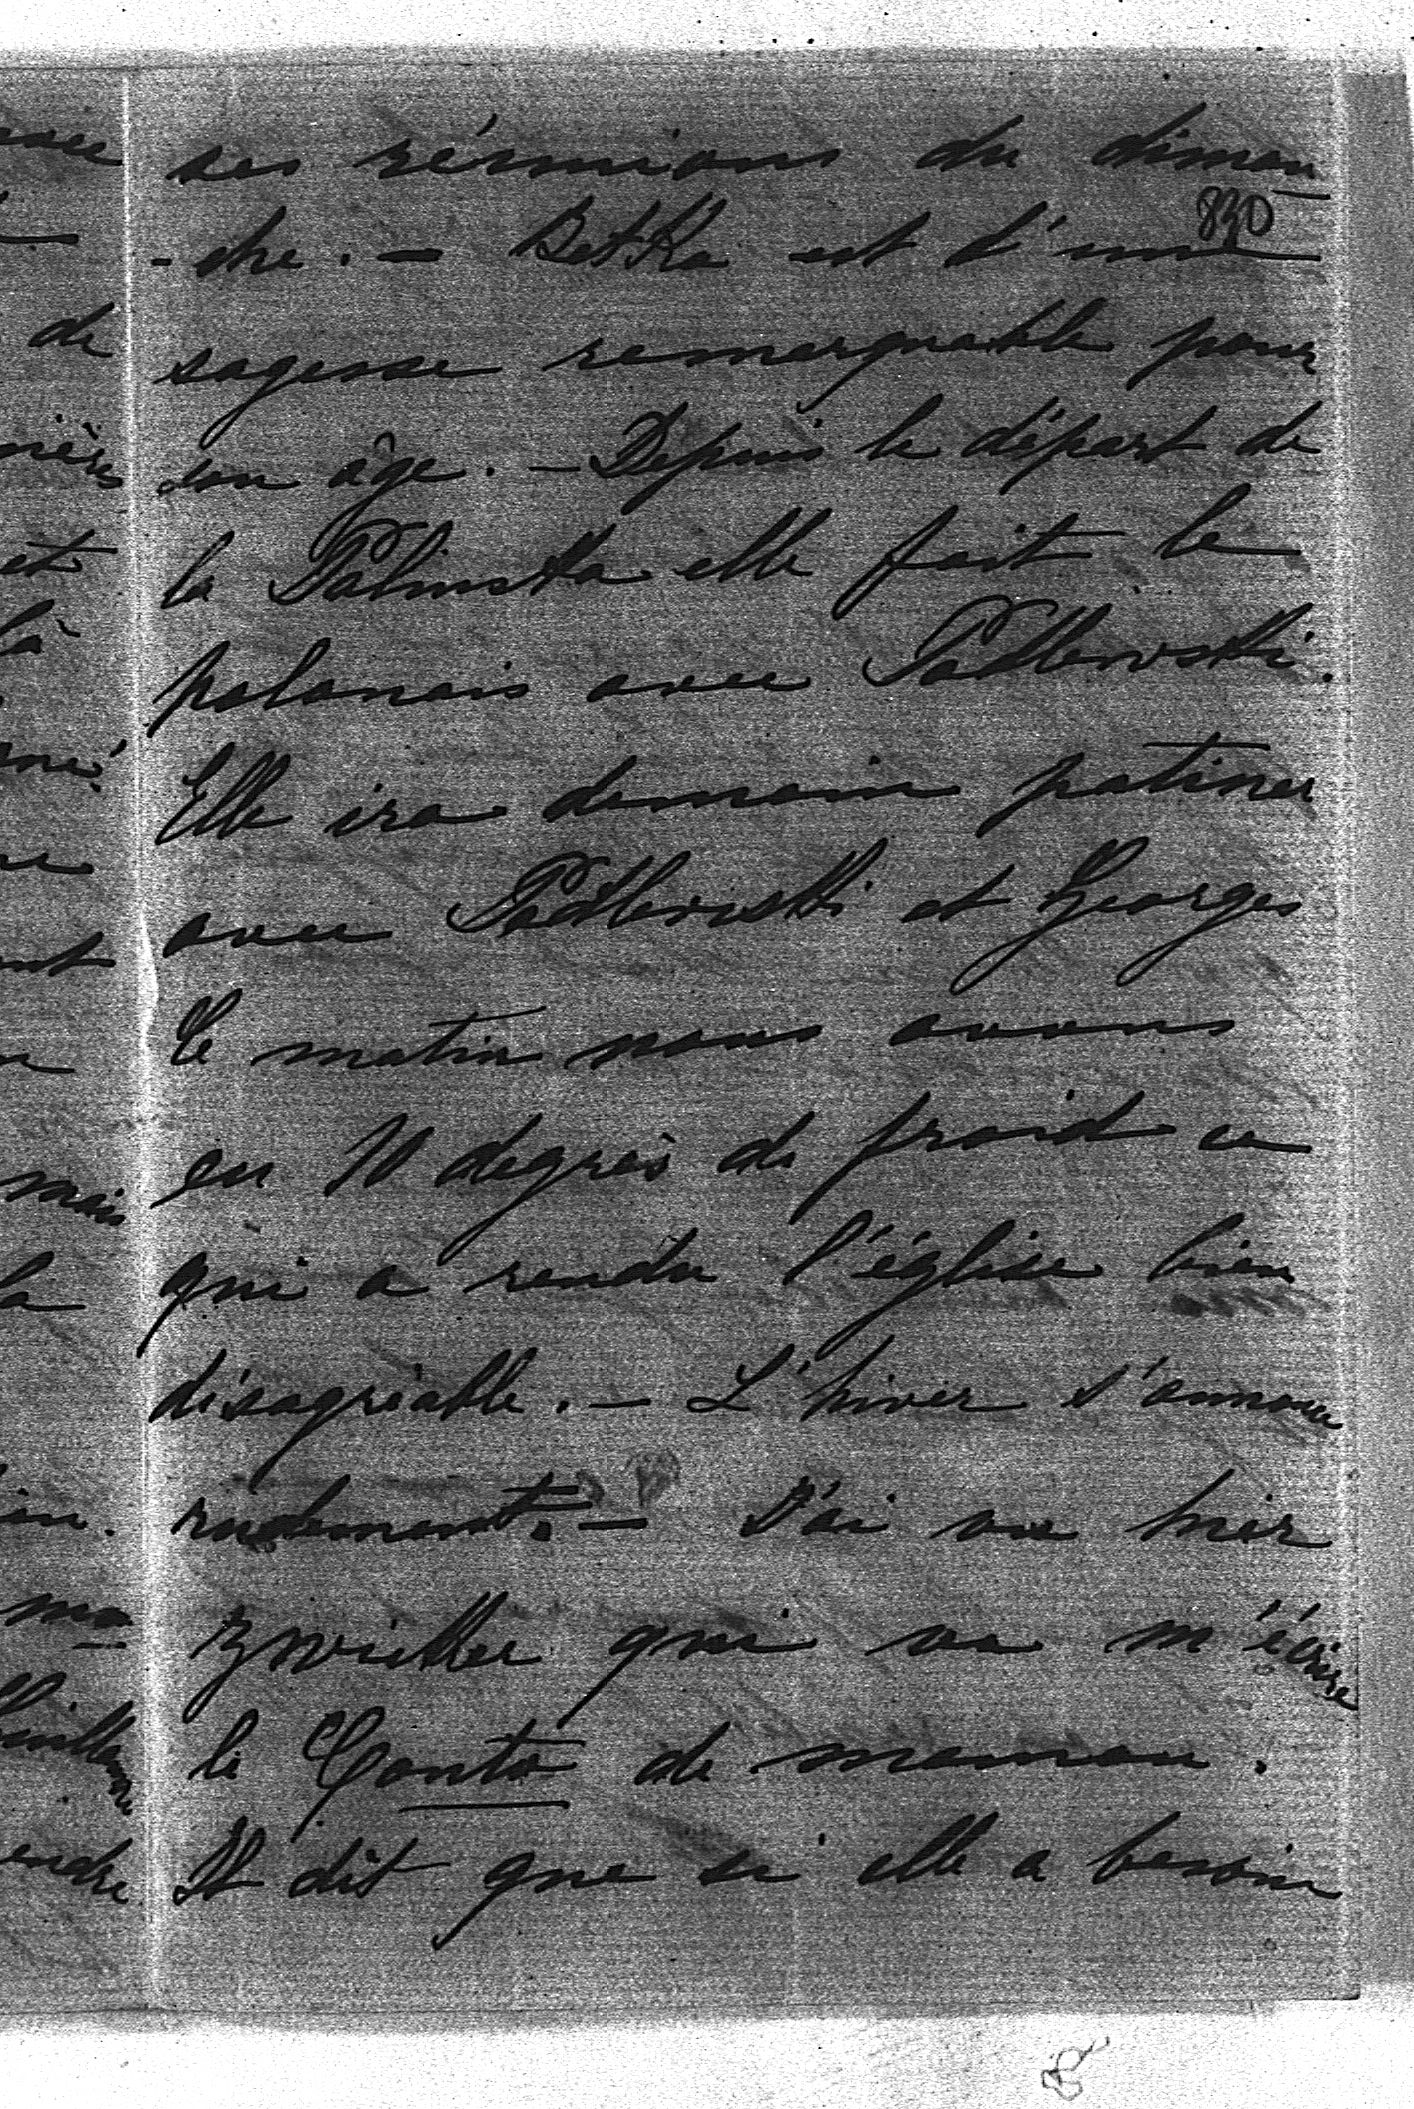 ses réunions du diman
830
-che. – Betka est d'une
sagesse remarquable pour
son âge. – Depuis le départ de
la Polinska elle fait le
polonais avec Podlewski.
Elle ira demain patiner
avec Podlewski et Georges
Ce matin nous avons
eu 10 degrés de froid ce
qui a rendu l'église bien
désagréable. – L'hiver s'annonce
rudement. – J'ai vu hier
qui va m'écrire
le Conto de maman.
Il dit que si elle a besoin